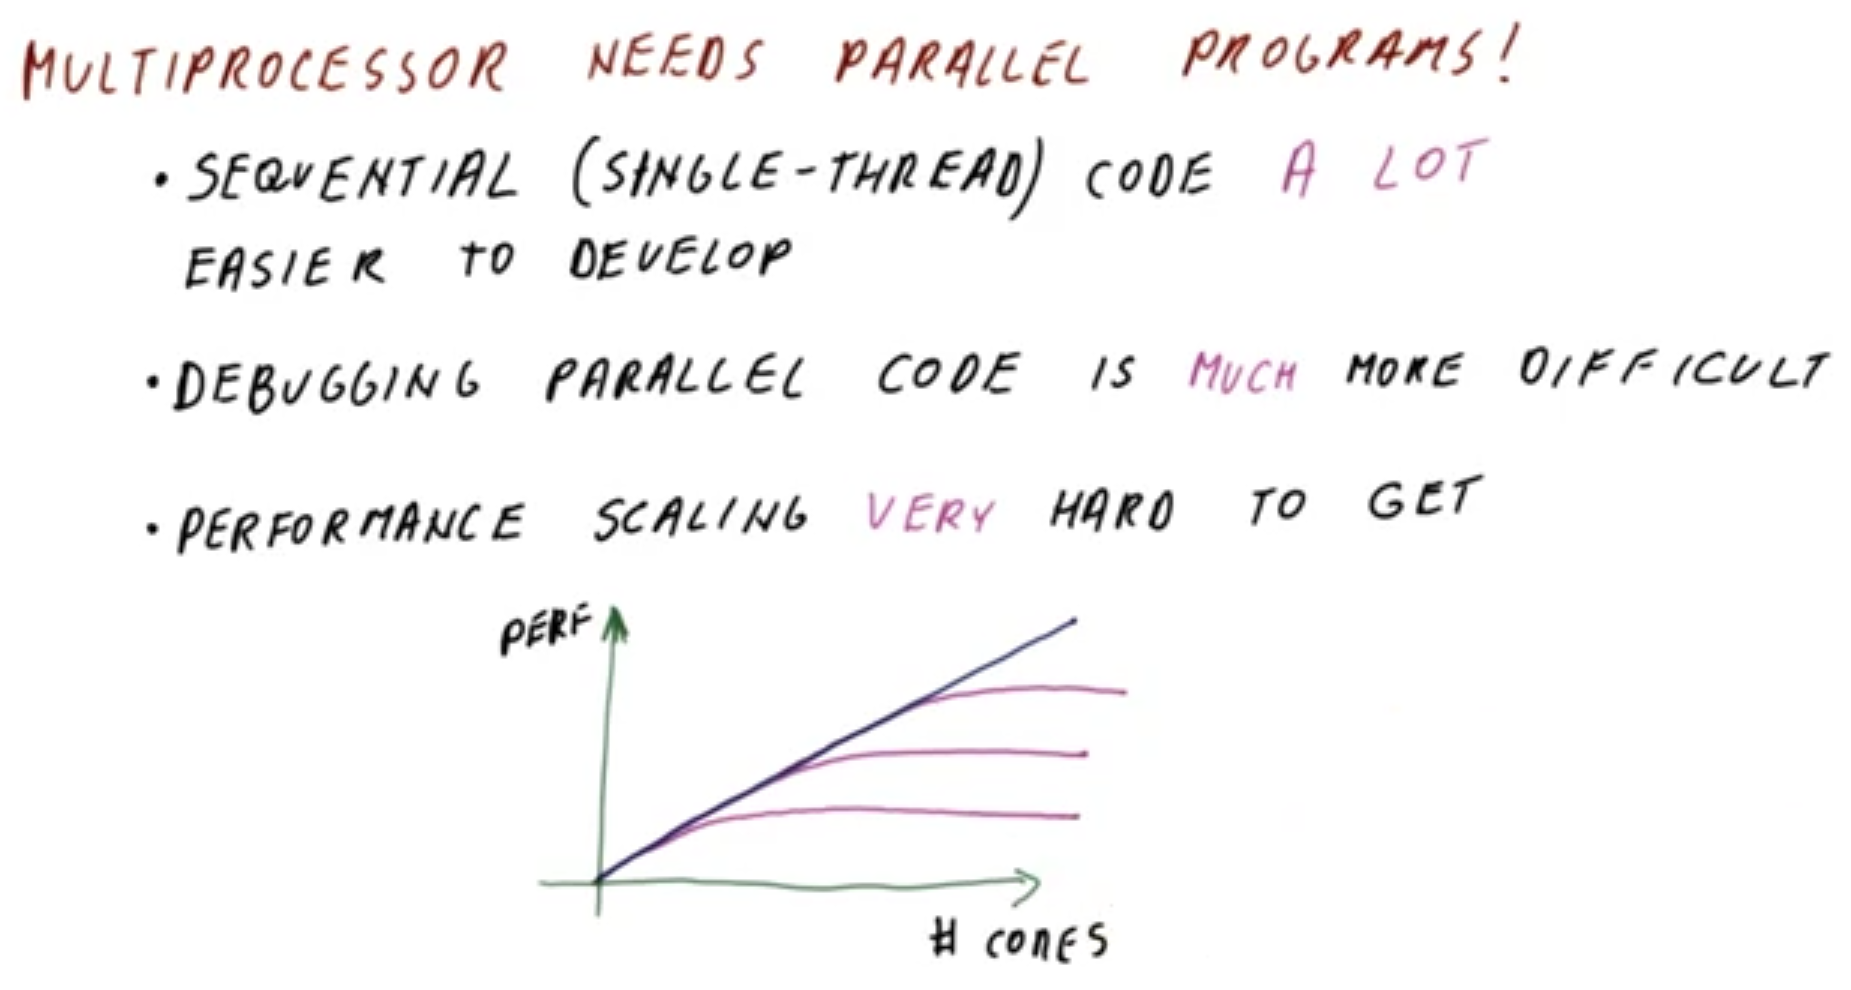 MULTIPROCESSOR NEEDS PARALLEL PROGRAMS!
• SEQUENTIAL (SINGLE-THREAD) CODE A LOT
EASIER TO DEVELOP
• DEBUGGING PARALLEL CODE IS MUCH MORE DIFFICULT
• PERFORMANCE SCALING VERY HARD TO GET
PERF
# CORES